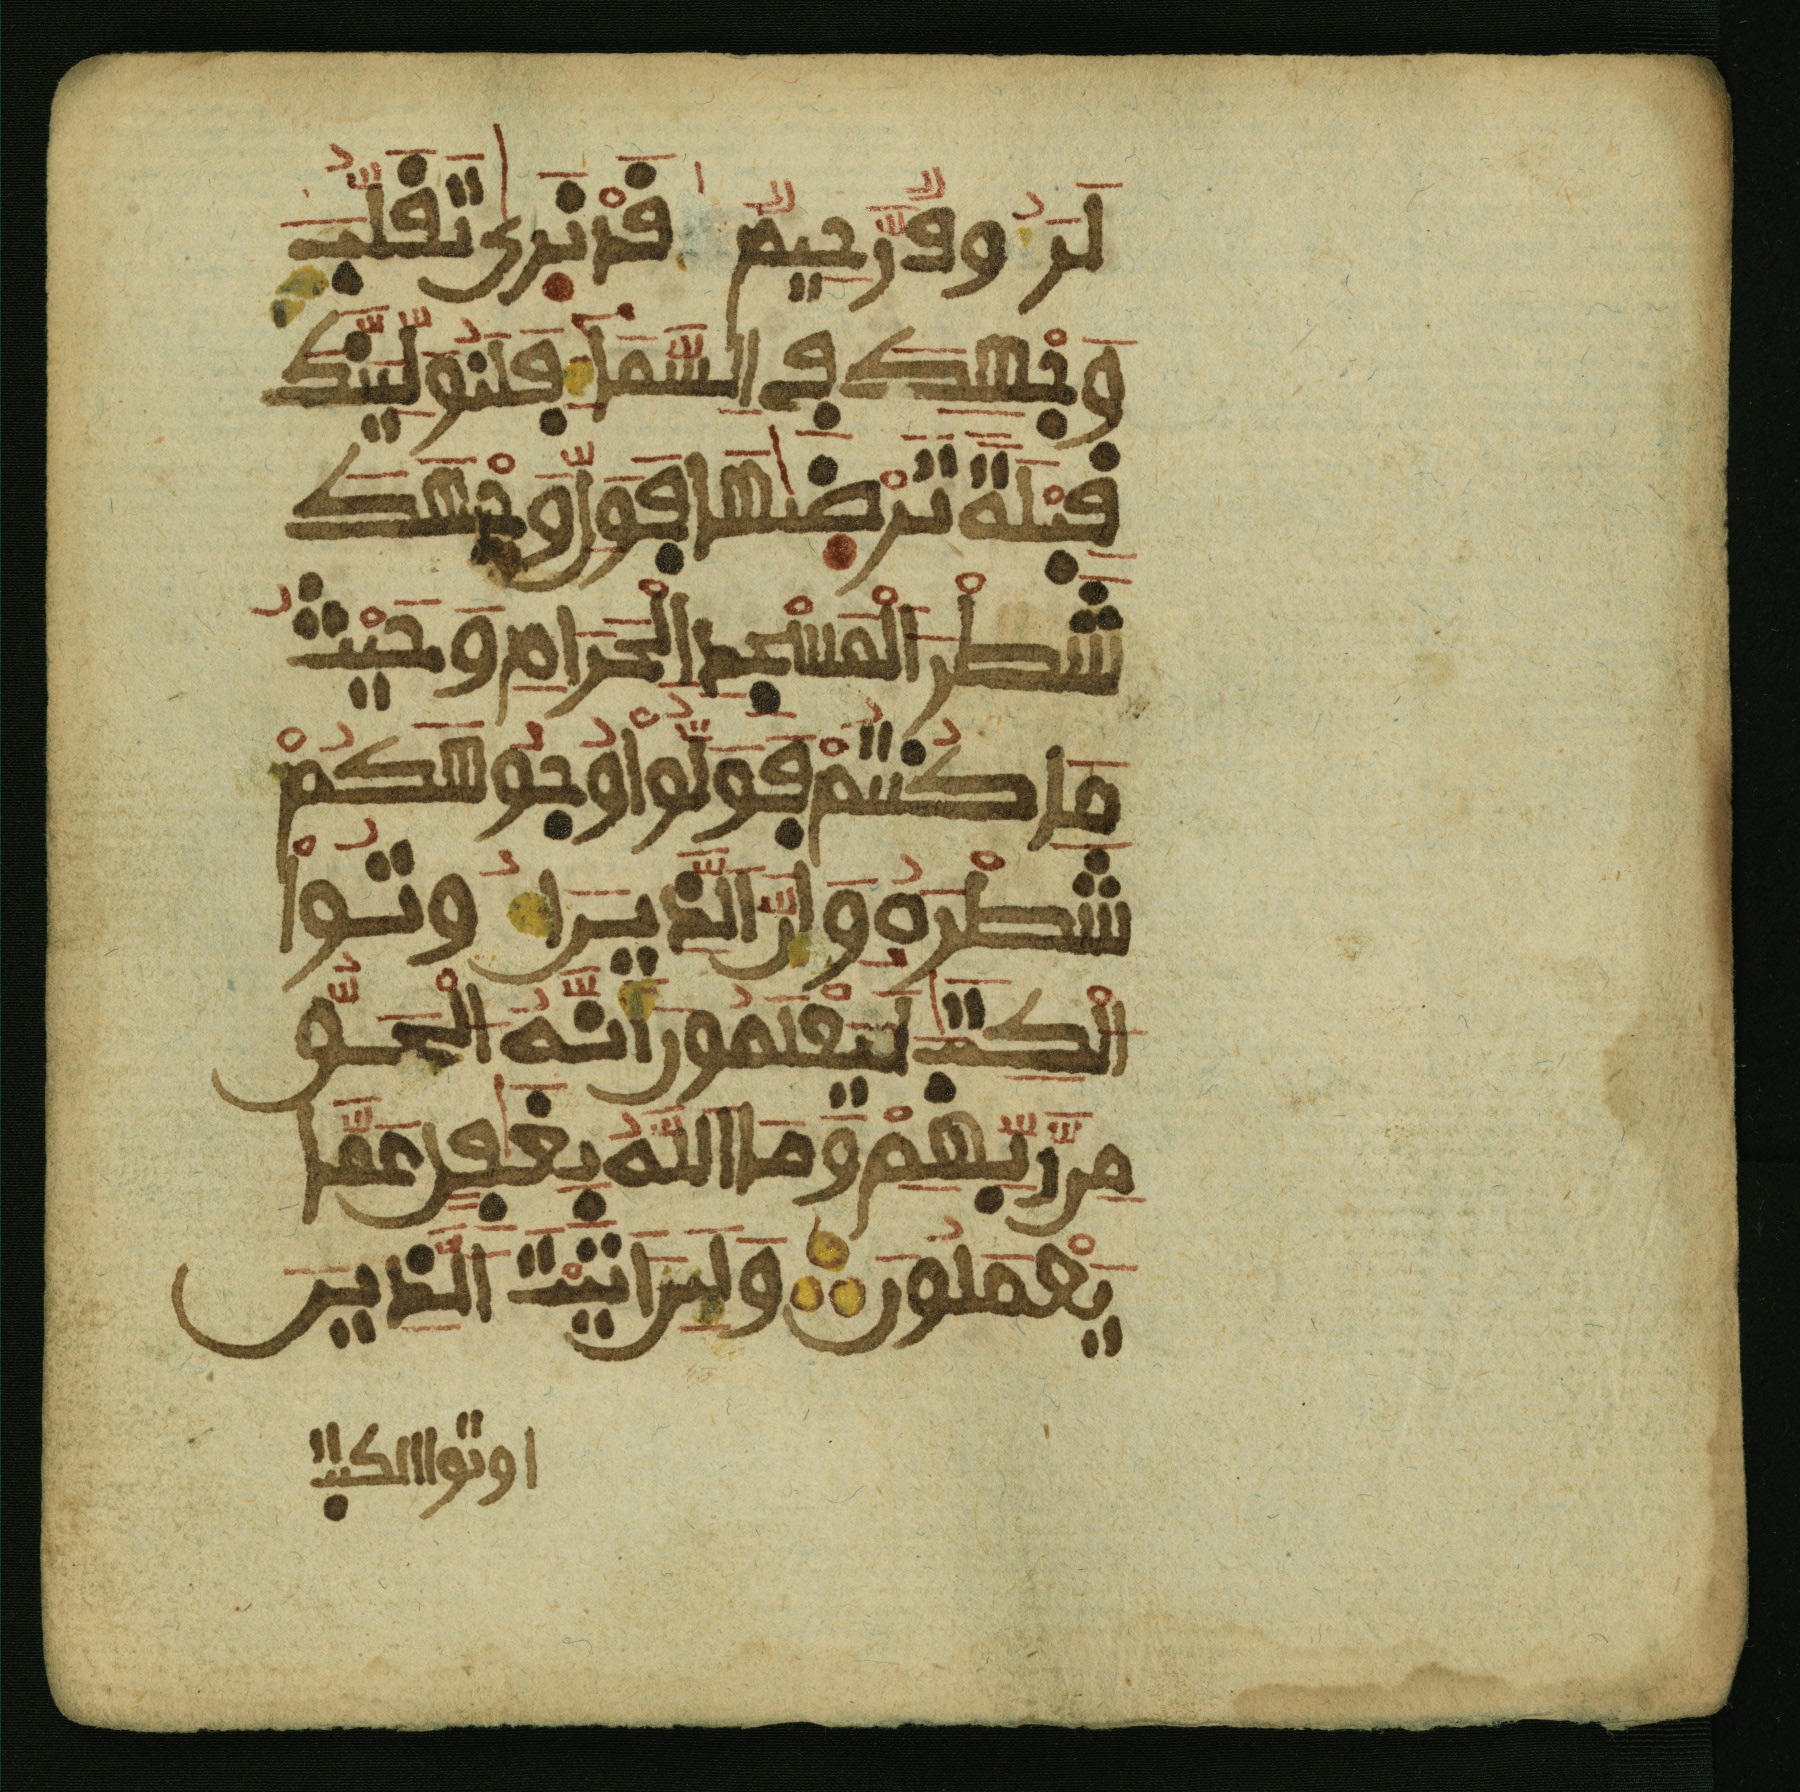 لَرَءُوفٌ رَّحِيمٌ قَدْ نَرَىٰ تَقَلُّبَ
وَجْهِكَ فِي السَّمَاءِ فَلَنُوَلِّيَنَّكَ
قِبْلَةً تَرْضَىٰهَا فَوَلِّ وَجْهَكَ
شَطْرَ الْمَسْجِدِ الْحَرَامِ وَحَيْثُ
مَا كُنتُمْ فَوَلُّواْ وُجُوهَكُمْ
شَطْرَهُ وَإِنَّ الَّذِينَ أُوتُواْ
الْكِتَٰبَ لَيَعْلَمُونَ أَنَّهُ الْحَقُّ
مِن رَّبِّهِمْ وَمَا اللَّهُ بِغَٰفِلٍ عَمَّا
يَعْمَلُونَ وَلَئِنْ أَتَيْتَ الَّذِينَ
اوتوا الكتب